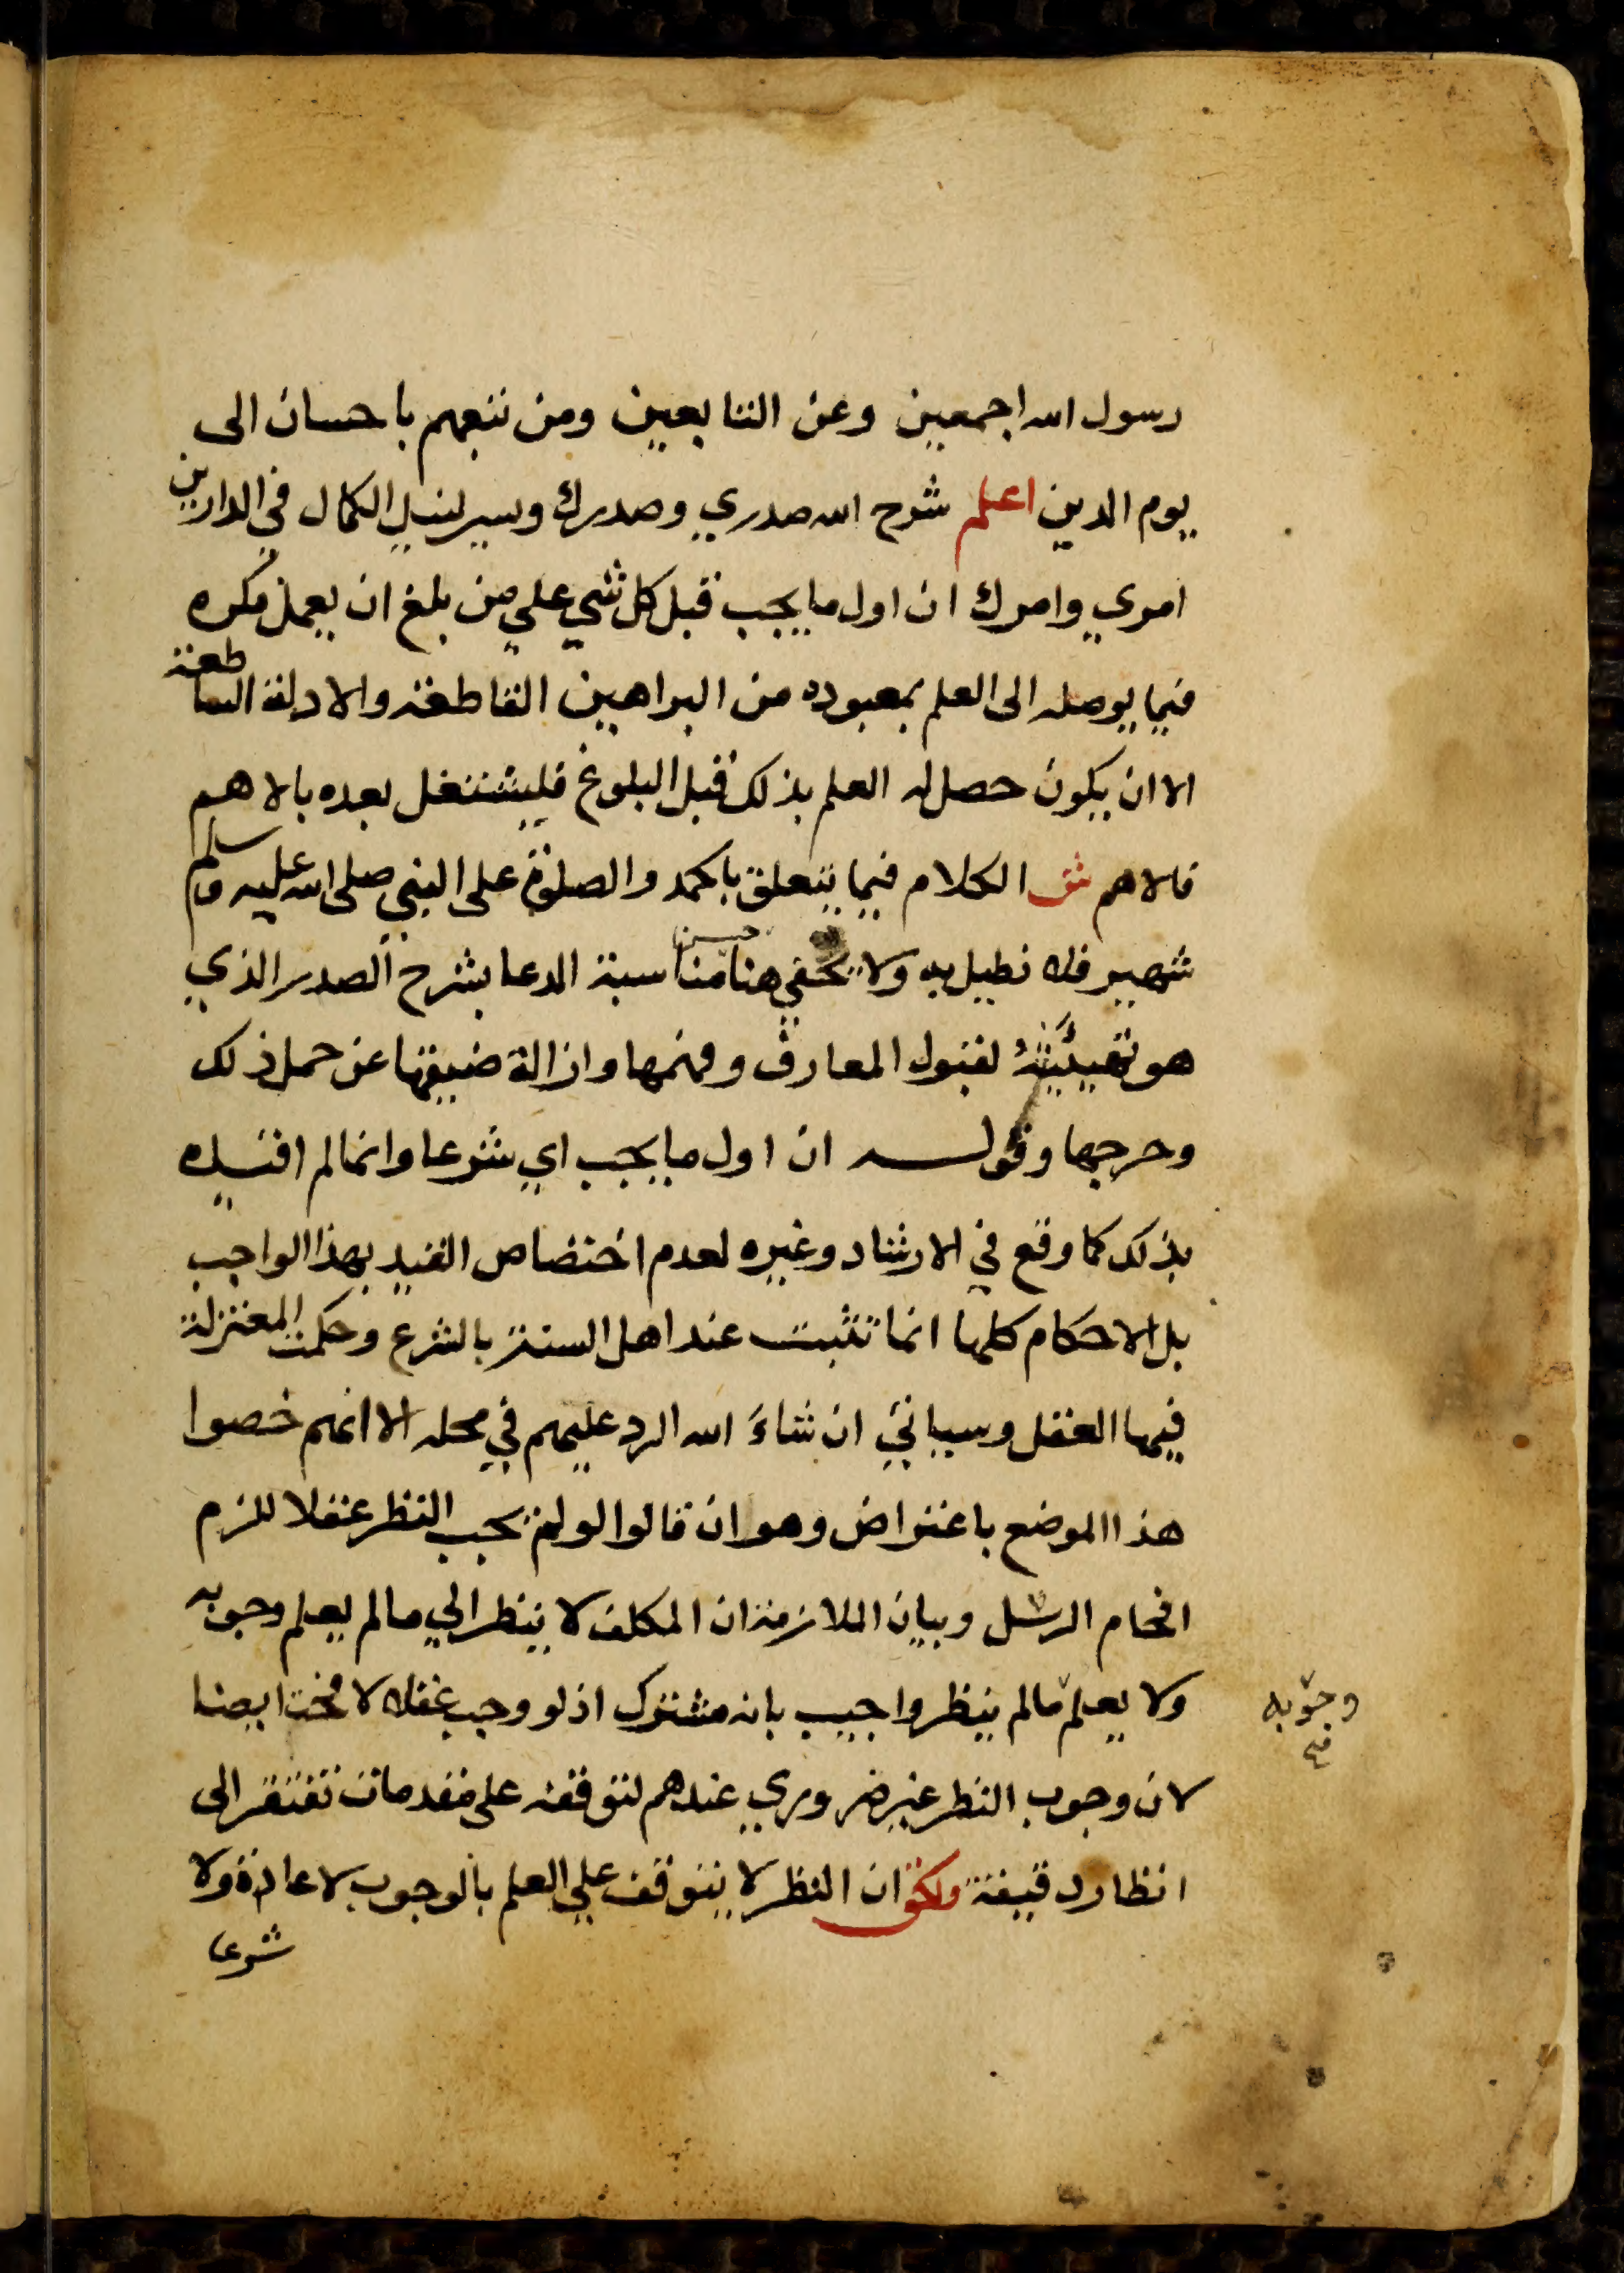 رسول الله اجمعين وعن التابعين ومن تبعهم باحسان الى
يوم الدين اعلم شرح الله صدري وصدرك ويسر لنيل الكمال في الدارين
امري وامرك ان اول ما يجب قبل كل شي علي من بلغ ان يعمل فكره
فيما يوصله الى العلم بمعبوده من البراهين القاطعة والادلة الساطعة
الا ان يكون حصل له العلم بذلك قبل البلوغ فليشتغل بعده بالاهم
فالاهم ش الكلام فيما يتعلق بالحمد والصلوة على النبي صلى الله عليه وسلم
شهير فلا نطيل به ولا يخفي حسن هنا مناسبة الدعا بشرح الصدر الذي
هو تهيئته لقبول المعارف وفهمها وازالة ضيقها عن حمل ذلك
وحرجها وقوله ان اول ما يجب اي شرعا وانما لم اقيده
بذلك كما وقع في الارشاد وغيره لعدم اختصاص القيد بهذا الواجب
بل الاحكام كلها انما تثبت عند اهل السنة بالشرع وحكمت المعتزلة
فيها العقل وسياتي ان شاء الله الرد عليهم في محله الا انهم خصوا
هذا الموضع باعتراض وهو ان قالوا لو لم يجب النظر عقلا للزم
افحام الرسل وبيان الملازمة ان المكلف لا ينظر الي ما لم يعلم وجوبه
ولا يعلم ما لم ينظر واجيب بانه مشترك اذ لو وجب عقلا لا فحمت ايضا
وجوبه
صح
لان وجوب النظر غير ضروري عندهم لتوقفه على مقدمات تفتقر الى
انظار دقيقة والحق ان النظر لا يتوقف علي العلم بالوجوب لا عادة ولا
شرعا